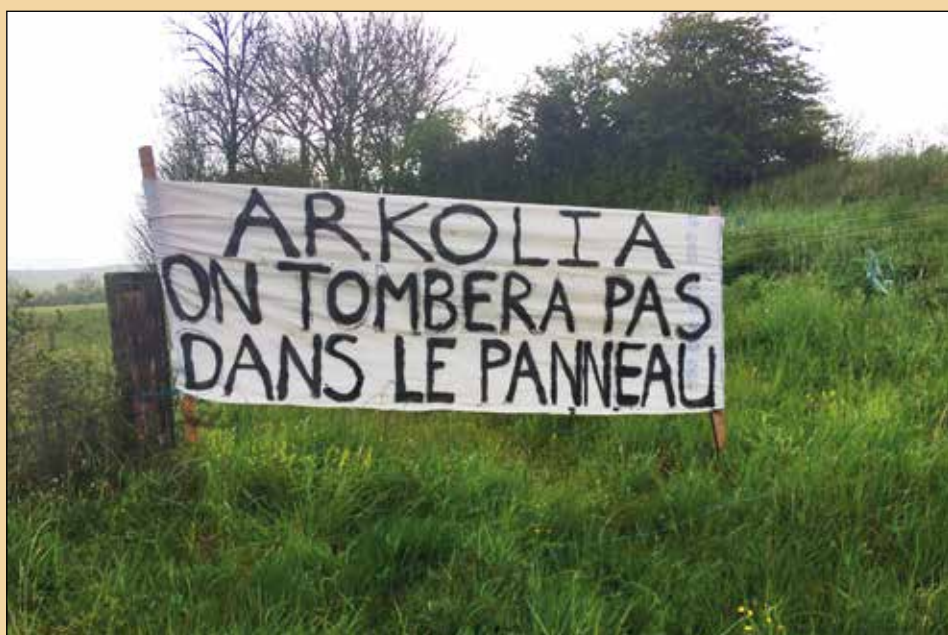 ARKOLIA
ON TOMBERA PAS
DANS LE PANNEAU